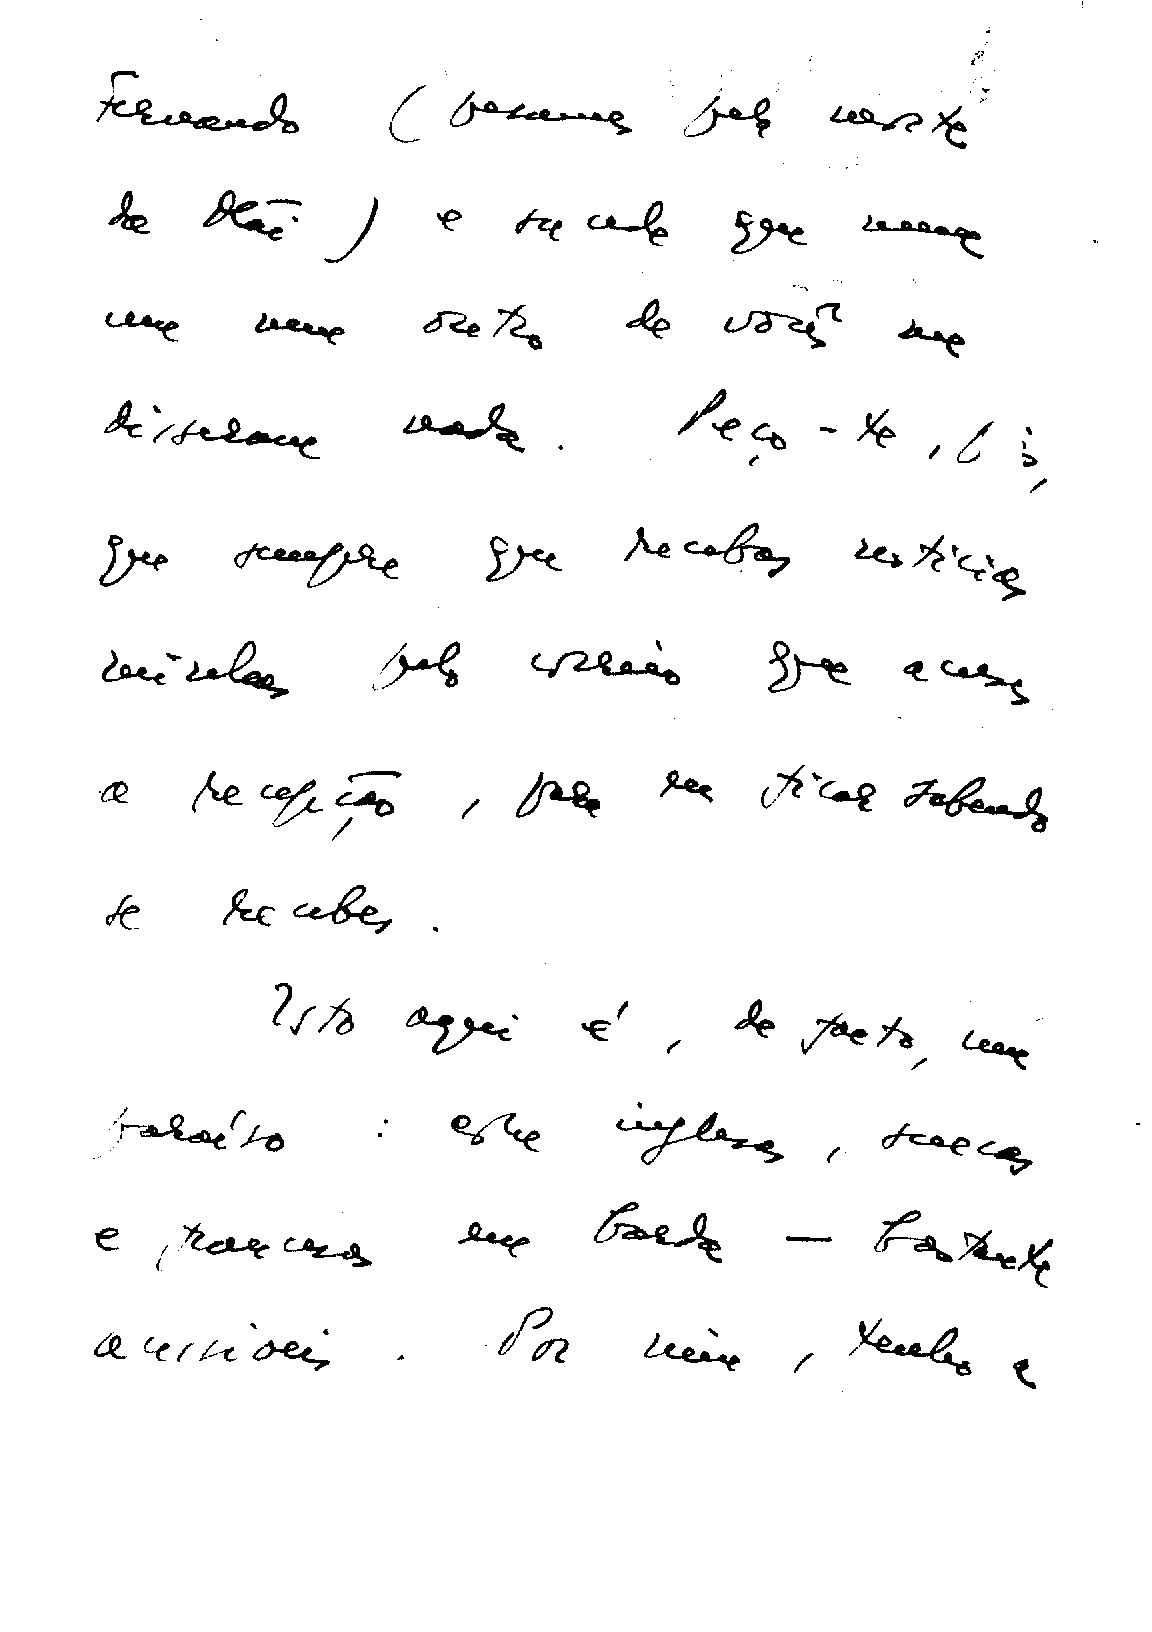 Fernando ( pesames pela morte
da Mãi ) e sucede que nem
um nem outro de vocês me
disseram nada. Peço-te, Liò,
que sempre que recebas noticias
minhas pelo correio que acuses
a recepção, para eu ficar sabendo
se recebes.
Isto aqui é, de facto, um
paraíso : entre inglesas, suecas
e francesas em barda — bastante
acessiveis. Por mim, tenho a